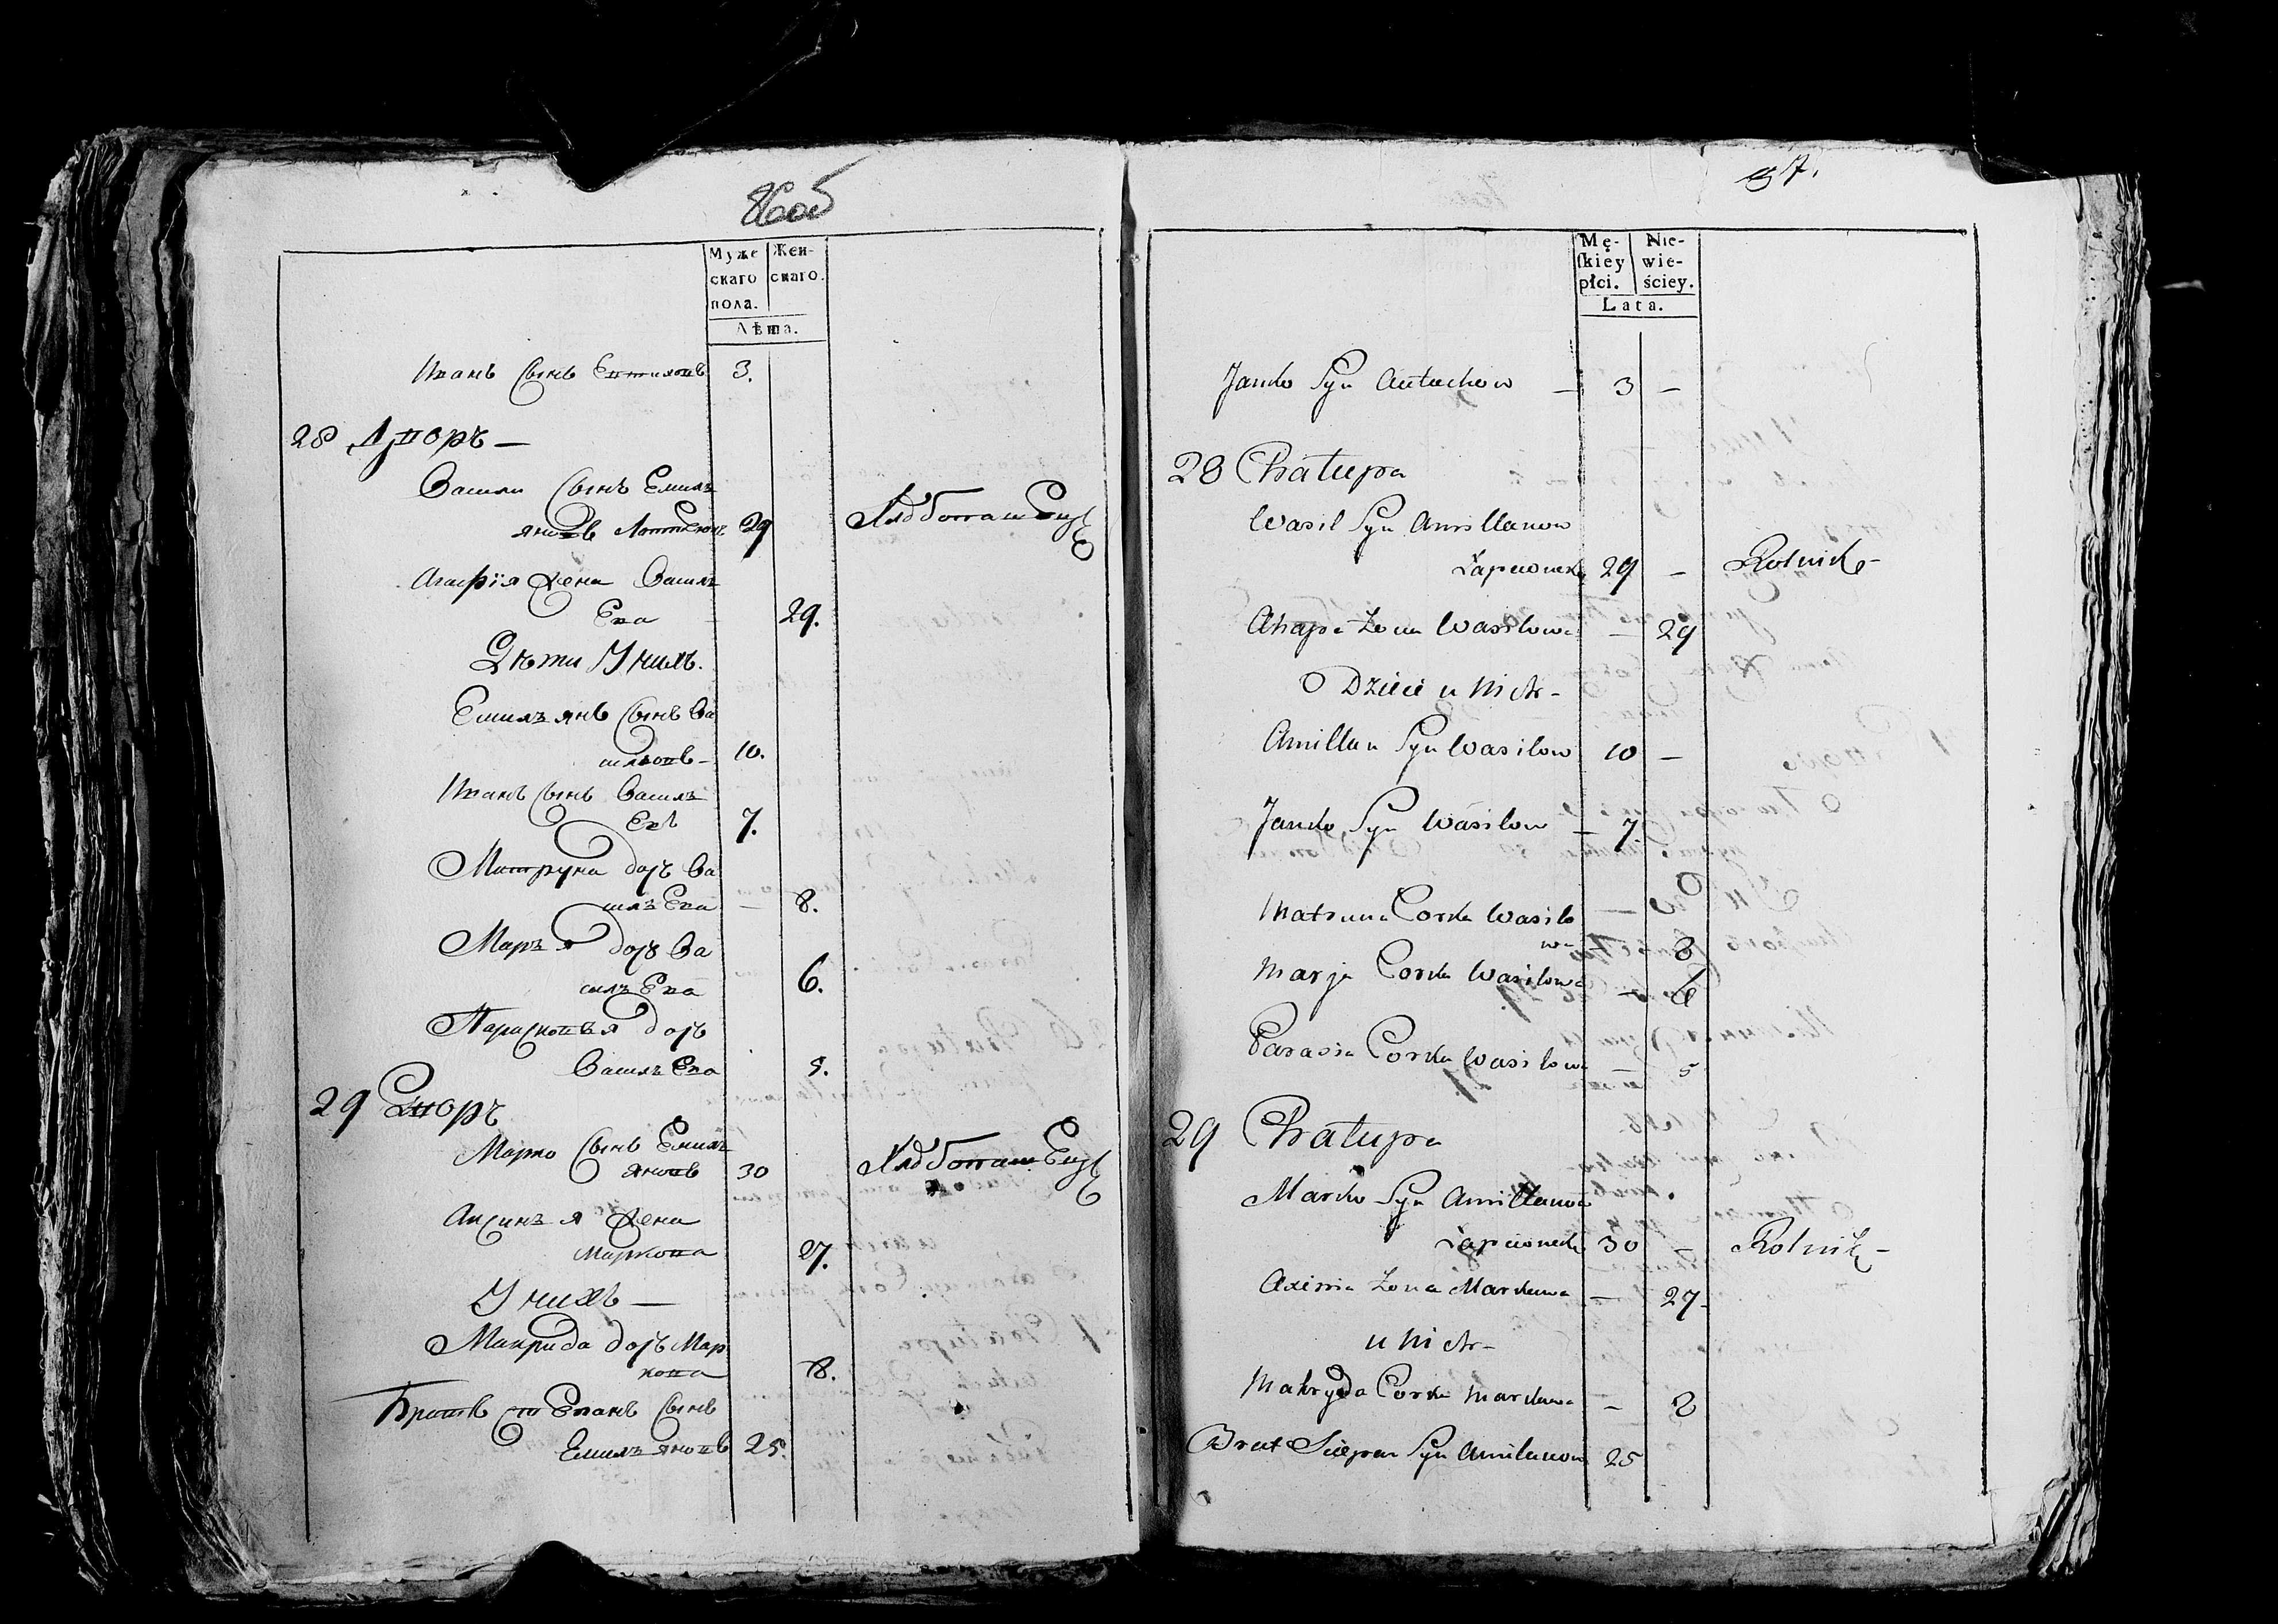 86об
Муже
скаго
пола.
Жен-
скаго.
Лѣта.
Иванъ Сынъ Евтиховъ 3.
28 Дворъ —
Васили Сынъ Емилъ
яновъ 29 Хлѣбопашецъ
Агафія Жена Василъ
Ева 29.
Дѣти У нихъ.
Емилъянъ Сынъ Ва
силъовъ — 10.
Иванъ Сынъ Василъ
Евъ 7.
Матруна дочъ Ва
силъЕва — 8.
Маръя дочъ Ва
силъЕва 6.
Парасковъя дочъ
ВасилъЕва 5.
29 Дворъ
Марко Сынъ Емилъ
яновъ 30 ХлѣбопашЕцъ
Аксинъя Жена
Маркова 27.
У нихъ —
Макрида дочъ Мар
кова 8.
Братъ стЕпанъ Сынъ
Емилъяновъ 25.
87.
Mę-
skiey
płci.
Nie-
wie-
ściey.
Lata.
Janko Syn Autuchow — 3 —
28 Chałupa
Wasil Syn Amillanow
Łapcionek 29 — Rolnik —
Ahapa Zona Wasilowa — 29
Dzieci u nich —
Amillan Syn Wasilow 10 —
Janko Syn Wasilow — 7
Matruna Corka Wasilo
wa — 8
Marja Corka Wasilowa — 6
Parasia Corka Wasilowa — 5
29 Chałupa
Marko Syn Amillanow
Łapcionek 30 — Rolnik —
Axinia Zona Markowa — 27 —
u nich —
Mahryda Corka Markowa — 8
Brat Sciepan Syn Amilanow 25